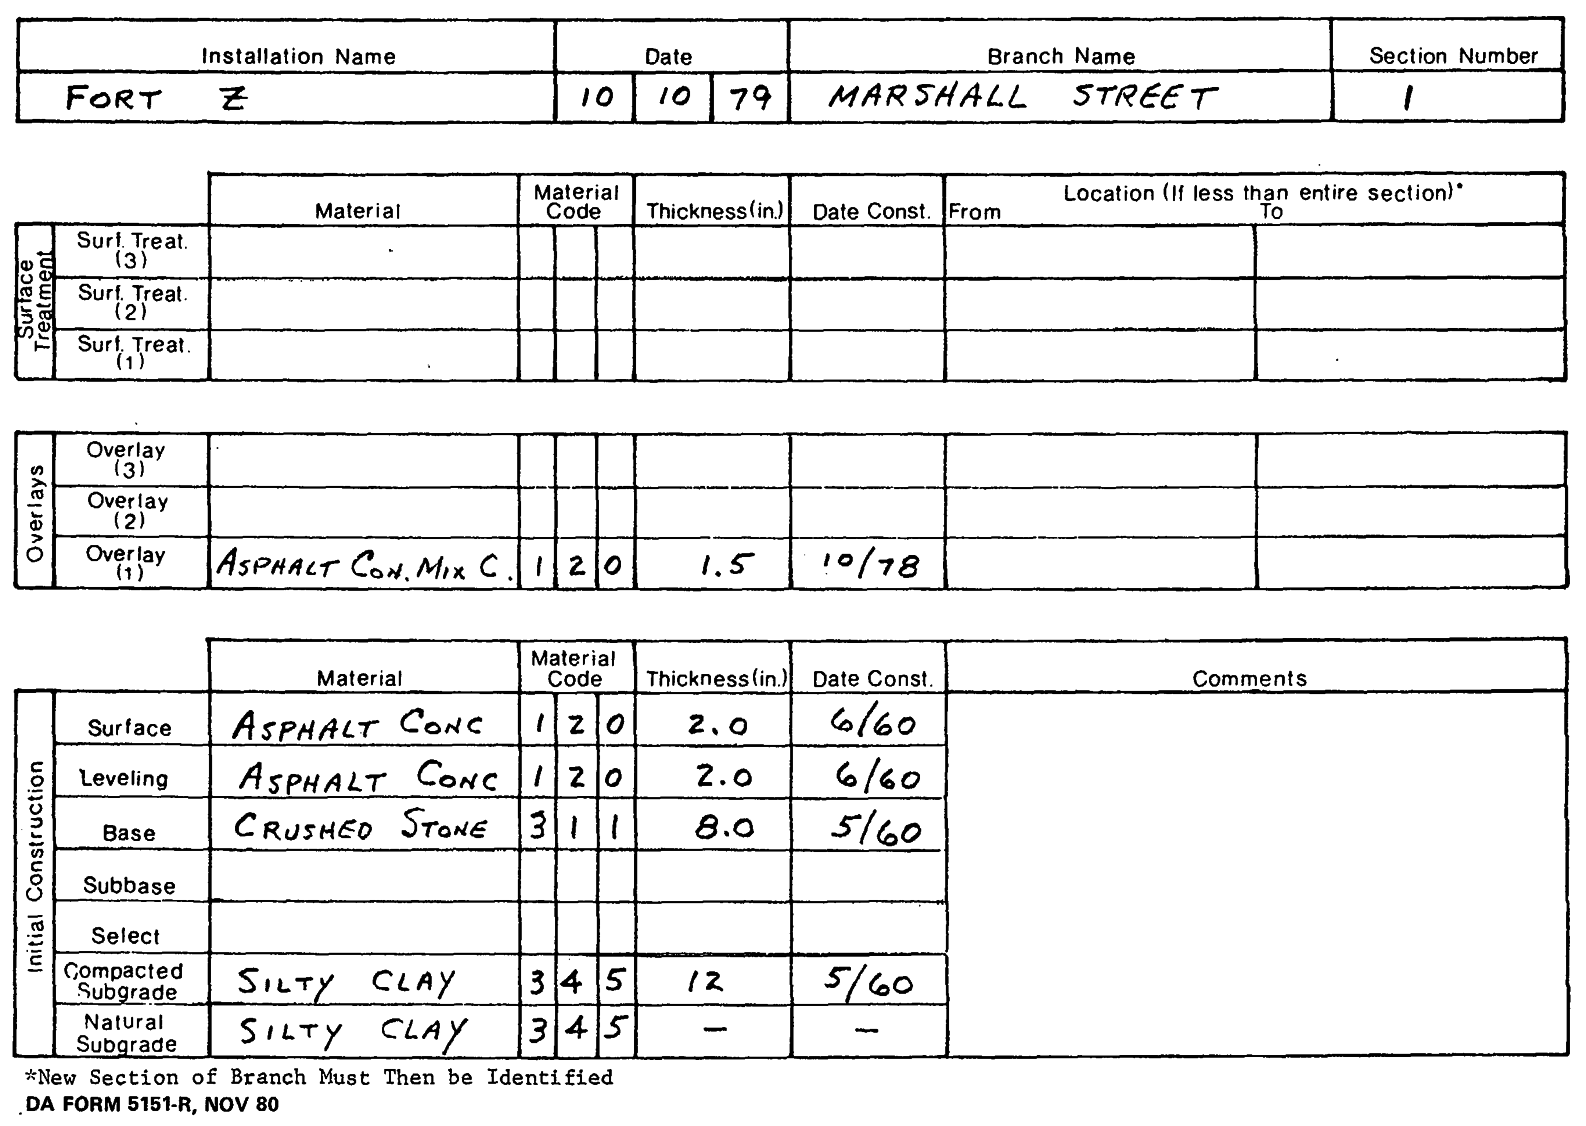 Installation Name Date Branch Name Section Number
FORT Z 10 10 79 MARSHALL STREET 1
Material Material Code Thickness(in.) Date Const. Location (If less than entire section)*
From To
Surface Treatment
Surf. Treat. (3)
Surf. Treat. (2)
Surf. Treat. (1)
Overlays
Overlay (3)
Overlay (2)
Overlay (1) ASPHALT CON. MIX C. 1 2 0 1.5 10/78
Material Material Code Thickness(in.) Date Const. Comments
Initial Construction
Surface ASPHALT CONC 1 2 0 2.0 6/60
Leveling ASPHALT CONC 1 2 0 2.0 6/60
Base CRUSHED STONE 3 1 1 8.0 5/60
Subbase
Select
Compacted Subgrade SILTY CLAY 3 4 5 12 5/60
Natural Subgrade SILTY CLAY 3 4 5 — —
*New Section of Branch Must Then be Identified
DA FORM 5151-R, NOV 80